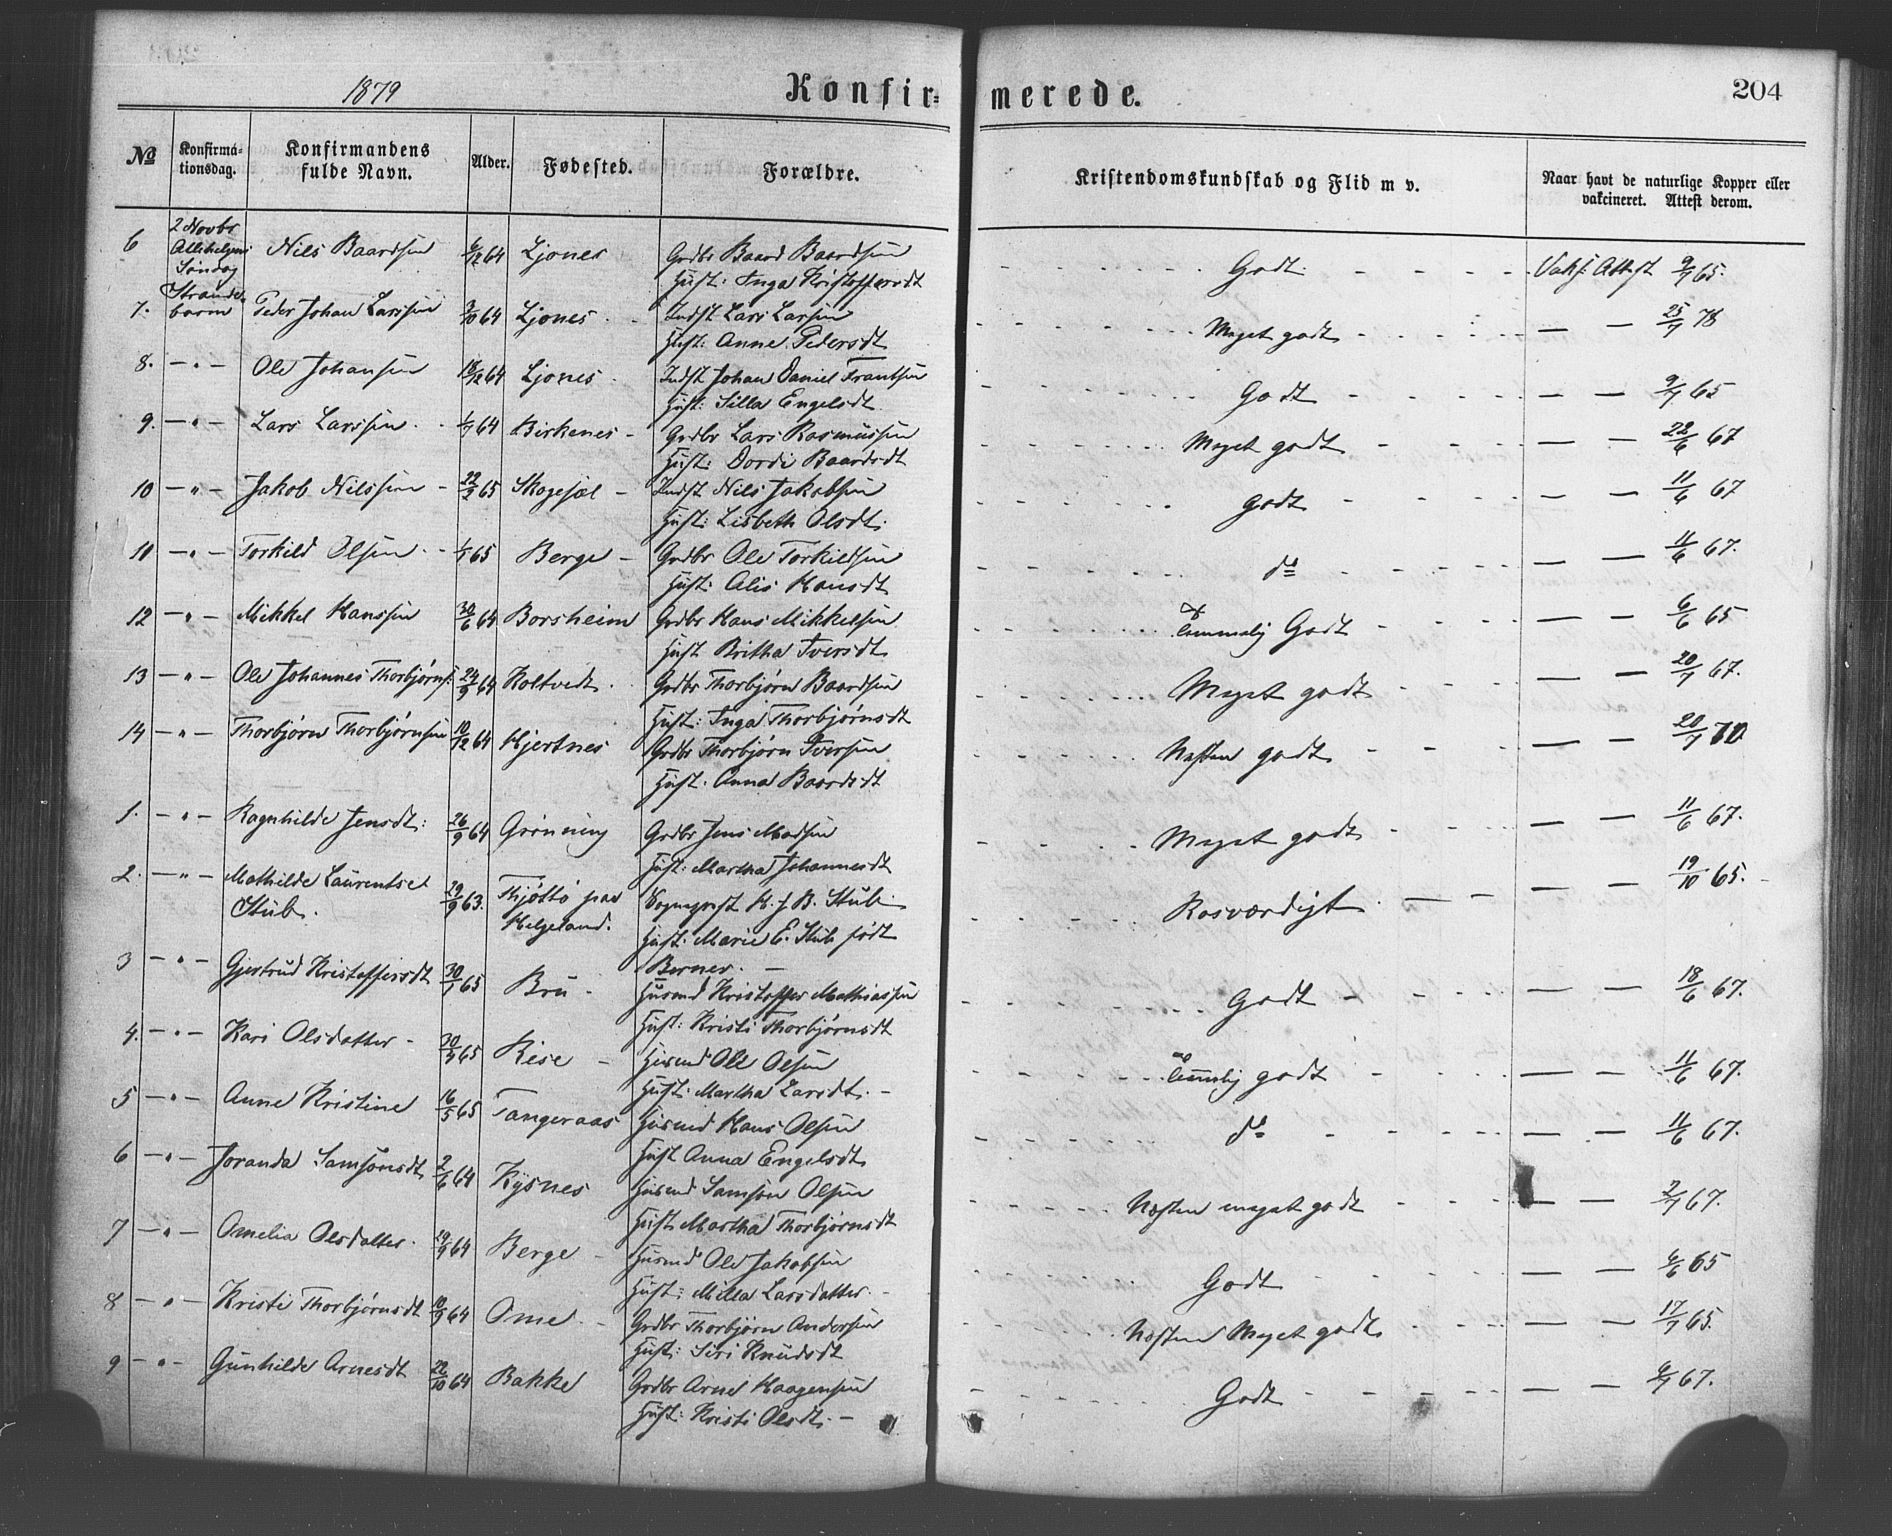 1879 Konfir= merede. 204
No Konfirma-tionsdag. Konfirmandens fulde Navn. Alder. Fødested. Forældre. Kristendomskundskab og Flid m v. Naar havt de naturlige Kopper eller vakcineret. Attest derom.
6 2 Novbr Allehelgens Søndag Nils Baardsen 6/12 64 Ljones Grdbr Baard Baardsen Godt Vaks: Attest 9/7 65.
Hust: Inga Kristoffersdt
7. Strande-barm Peder Johan Larssen 3/10 64 Ljones Indst Lars Larsen Meget godt — — 25/7 78
Hust: Anne Pedersdt
8. — " — Ole Johansen 18/12 64 Ljones Indst Johan Daniel Frantsen Godt — — 9/7 65
Hust: Silla Engelsdt.
9. — " — Lars Larssen 1/7 64 Birkenes Grdbr Lars Rasmussen Meget godt — — 22/6 67
Hust: Dordi Baardsdt
10 — " — Jakob Nilssen 22/2 65 Skogesæl Indst Nils Jakobsen godt — — 11/6 67
Hust: Lisbeth Olsdt.
11 — " — Torkild Olsen 1/1 65 Berge Grdbr Ole Torkildsen do — — 11/6 67.
Hust: Alis Hansdt
12 — " — Mikkel Hanssen 30/6 64 Borsheim Grdbr Hans Mikkelsen Temmelig Godt — — 6/6 65
Hust Britha Iversdt
13 — " — Ole Johannes Thorbjørns: 24/9 64 Holtvedt Grdbr Thorbjørn Baardsen Meget godt — — 20/7 67.
Hust: Inga Thorbjørnsdt
14 — " — Thorbjørn Thorbjørnsen 10/12 64 Hjertnes Grdbr Thorbjørn Iversen Næsten godt — — 20/7 70
Hust. Anna Baardsdt
1. — " — Ragnhilde Jensdt: 26/9 64 Grønning Grdbr Jens Madsen Meget godt — — 11/6 67.
Hust: Martha Johannesdt
2. — " — Mathilde Laurentse Stub. 29/9 63. Thjøttø paa Helgeland. Sogneprst H. J. B. Stub Rosværdigt — — 19/10 65.
Hust. Marie E. Stub født
Berner. —
3 — " — Gjertrud Kristoffersdt 30/1 65 Bru Husmd Kristoffer Mathiassen Godt — — 18/6 67.
Hust: Kristi Thorbjørnsdt
4. — " — Kari Olsdatter 30/3 65 Rise Husmd Ole Olsen Temmelig godt — — 11/6 67.
Hust: Martha Larsdt. —
5 — " — Anne Kristine 16/5 65 Tangeraas Husmd Hans Olsen do — — 11/6 67.
Hust Anna Engelsdt
6 — " — Joranda Samsonsdt 2/6 64 Kysnes Husmd Samson Olsen Næsten meget godt — — 2/7 67.
Hust Martha Thorbjørnsdt
7 — " — Omelia Olsdatter 29/9 64 Berge Husmd Ole Jakobsen Godt — — 6/6 65
Hust: Milla Larsdatter —
8 — " — Kristi Thorbjørnsdt 10/9 64 Ome Grdbr Thorbjørn Andersen Næsten Meget godt — — 17/7 65.
Hust: Siri Knudsdt
9 — " — Gunhilde Arnesdt 22/10 64 Bakke Grdbr Arne Haagensen Godt — — 9/7 67.
Hust: Kristi Olsdt. —